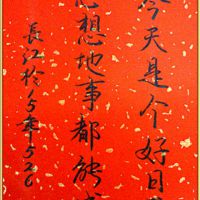 今天是个好日
思想地事都能
長江於15年526